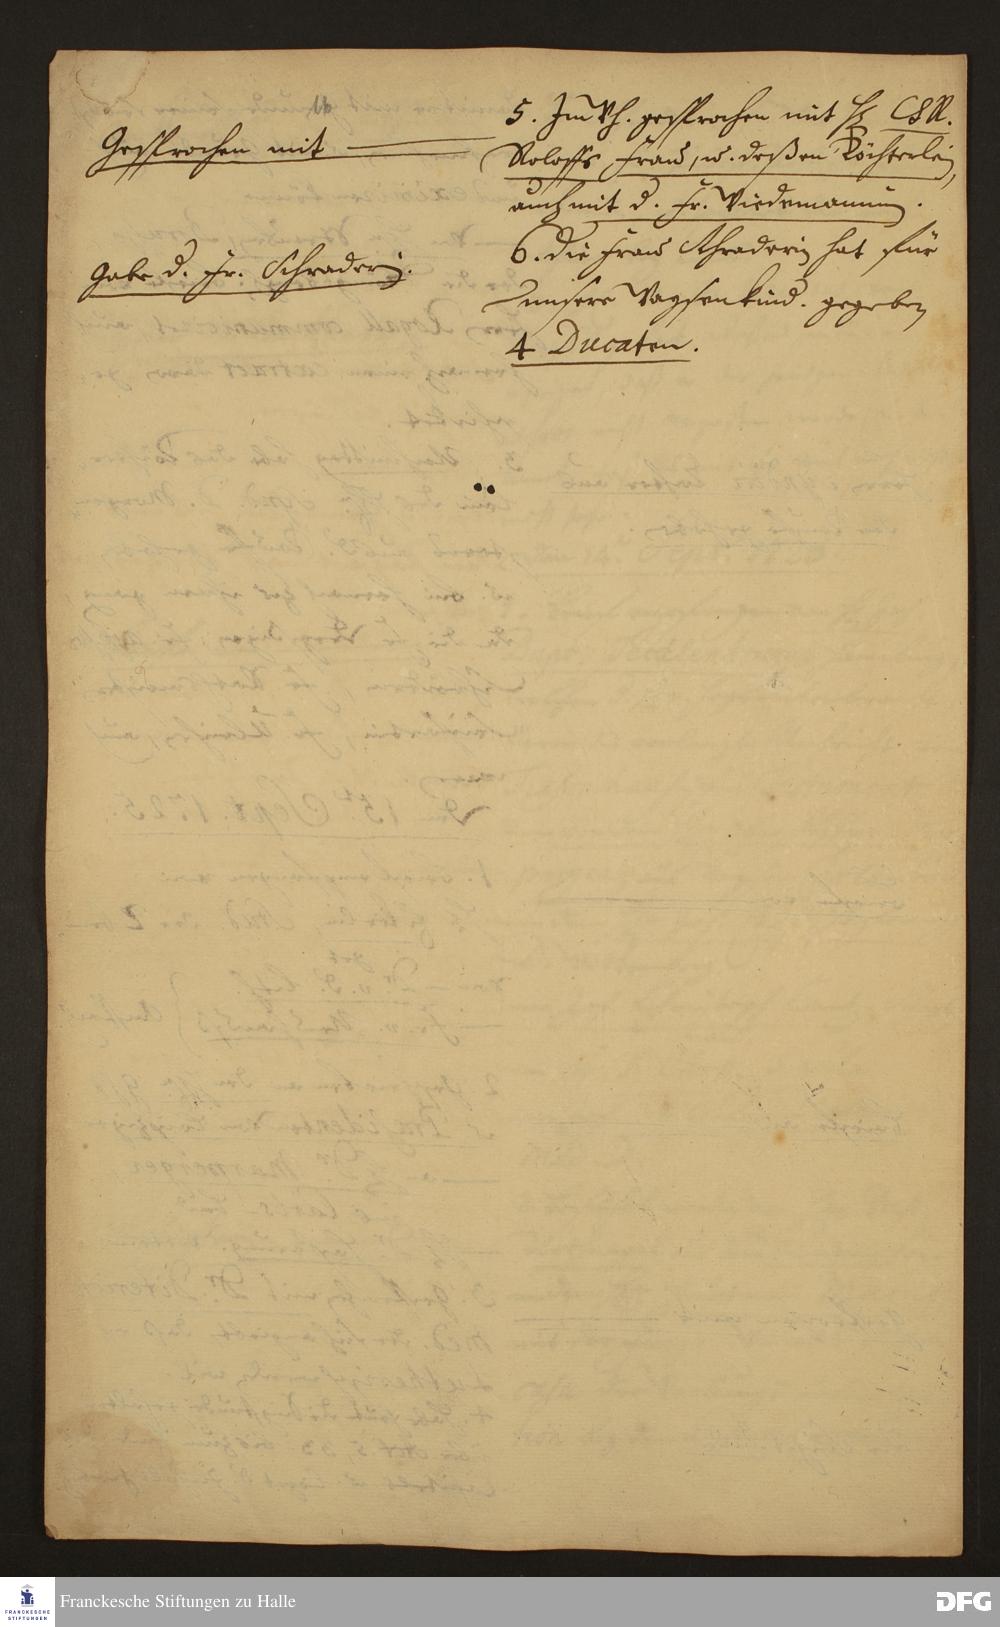 Gesprochen mit
Gabe d. Fr. Schraderin.
5. Im Wh. gesprochen mit H. CSR.
Roloffs Frau, u. deßen Töchterlein,
auch mit d. Fr. Wiedemannin.
6. Die Frau Schraderin hat für
unsere Waysenkind. gegeben
4 Ducaten.
Franckesche Stiftungen zu Halle
FRANCKESCHE
STIFTUNGEN
DFG